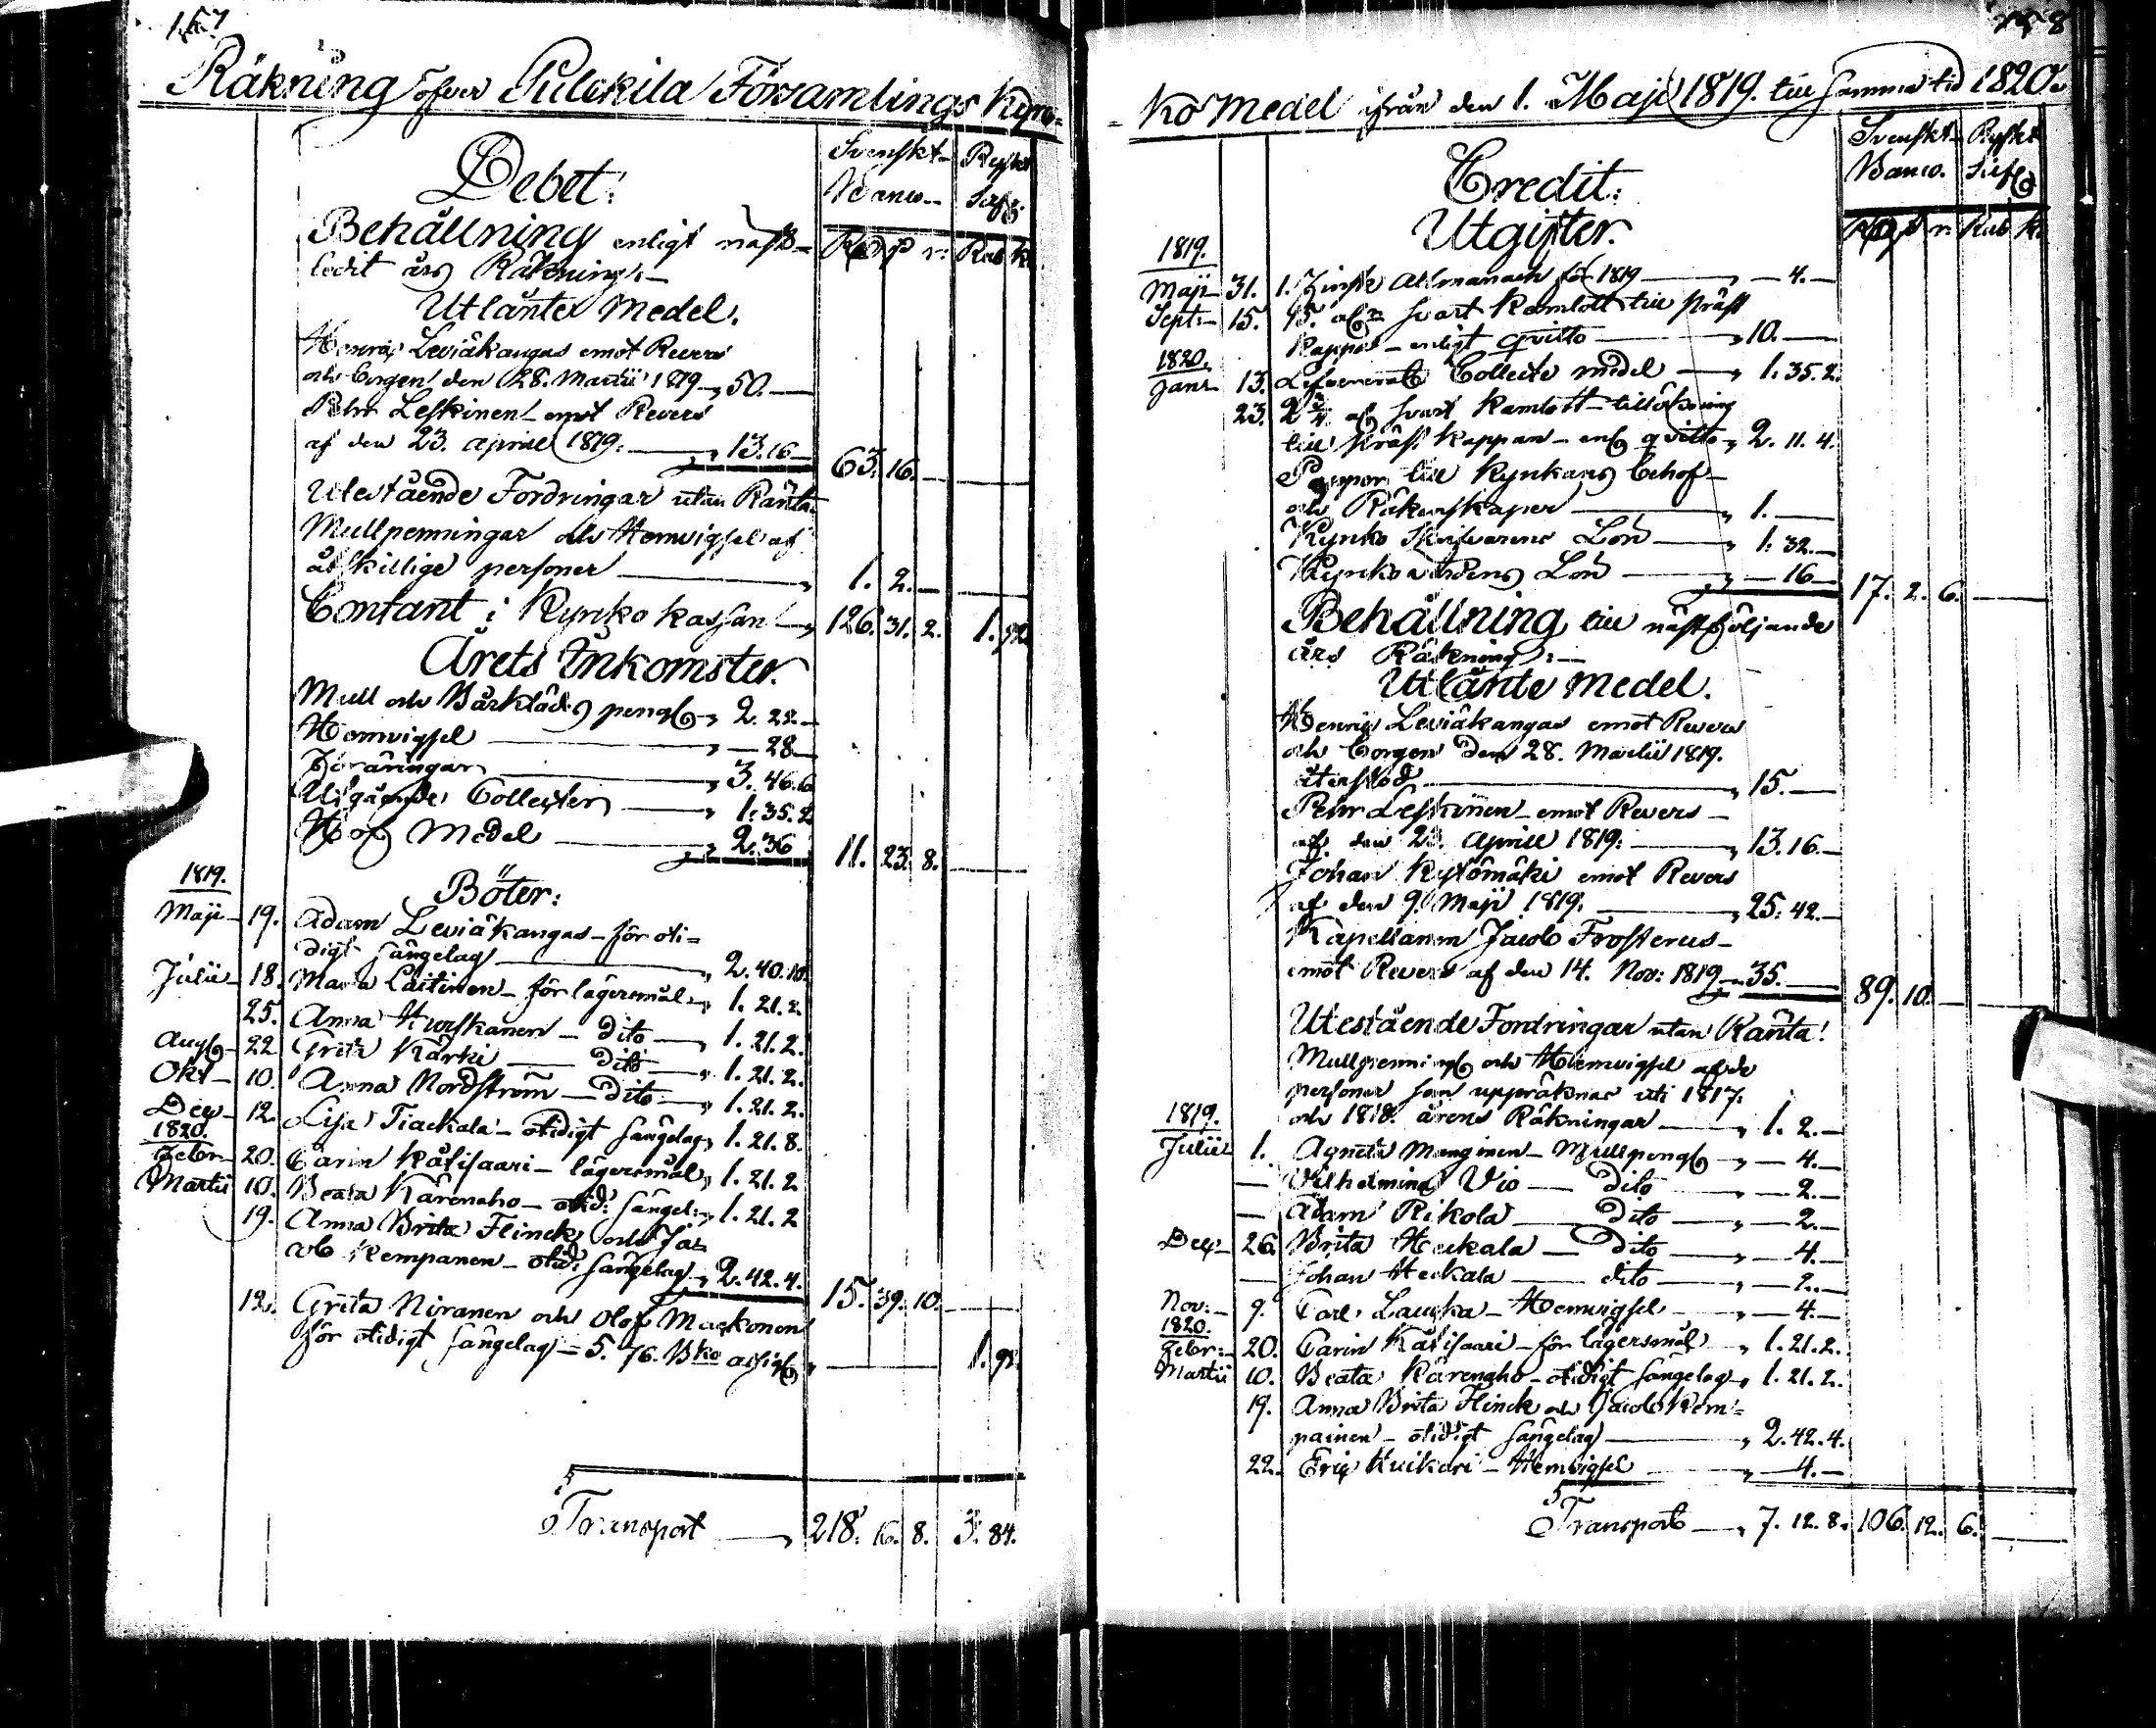 157
Räkning öfver Pulckila Församlings Kyrc-
Debet:
Svenskt Banco.
Ryskt
Rd s r: Rub k
Behållning enligt näst-
ledit års Räkning:-
Utlånte Medel.
Henric Leviäkangas emot Revers
och Borgen den 28. Martii 1819 " 50.-
Pehr Leskinen emot Revers
af den 23. April 1819: " 13.16- 63. 16. -
Utestående Fordringar utan Ränta
Mullpenningar och Hemvigsel af
åtskillige personer " 1. 2. -
Contant i Kyrko kassan " 126. 31. 2. 1. 92
Årets Inkomster.
Mull och Bårkläd peng " 2. 22 -
Hemvigsel " - 28 -
Föräringar " 3. 46. 6
Utgående Collecter " 1. 35. 2
Håf Medel " 2. 36 11. 23. 8.
Böter:
1819.
Maji - 19. Adam Leviäkangas - för oti-
digt sängelag " 2. 40. 10.
Julii - 18. Maria Laitinen - för lägersmål " 1. 21. 2.
25. Anna Hurskanen - Dito " 1. 21. 2.
Aug - 22 Greta Kärki - Dito " 1. 21. 2.
Okt - 10. Anna Nordström - Dito " 1. 21. 2.
Dec - 12. Lisa Tiackala - otidigt sängelag " 1. 21. 8.
1820.
Febr - 20. Carin Kälisaari - lägersmål " 1. 21. 2
Martii 10. Beata Kärenaho - otid: sängel: " 1. 21. 2
19. Anna Brita Flinck och Ja-
cob Kempanen - otid: sängelag " 2. 42. 4. 15. 39. 10.
12. Greta Niranen och Olof Mackonen
för otidigt sängelag - 5. 76. Bko assig " 1. 92.
Transport " 218. 16. 8. 3. 84.
158
-ko Medel ifrån den 1. Maji 1819. till samma tid 1820.
Credit:
Svenskt Banco.
Ryskt
Rd s r: Rub k
Utgifter.
1819.
Maji - 31. 1. Finsk Allmanach för 1819 " - 4. -
Sept: - 15. 15. aln svart Kamlott till Präst
Kappa - enligt qvitto " 10. -
1820.
Janr 13. Collecte medel " 1. 35. 2.
23. 2 3/4 al svart Kamlott - tillökning
till Präst Kappan - enl qvitto " 2. 11. 4.
Papper till Kyrkans behof -
och Räkenskaper " 1. -
Kyrko Skrifvarens Lön " 1. 32. -
Kyrkovärdens Lön " - 16 - 17. 2. 6.
Behållning till nästföljande
års Räkning: -
Utlånte Medel.
Henric Leviäkangas emot Revers
och Borgen den 28. Martii 1819.
återstod " 15. -
Pehr Leskinen - emot Revers -
af den 23. April 1819: " 13. 16. -
Johan Kytömäki emot Revers
af den 9. Maji 1819. " 25. 42. -
Kapellanen Jacob Frosterus -
emot Revers af den 14. Nov: 1819 " 35. - 89. 10. -
Utestående Fordringar utan Ränta!
Mullpenning och Hemvigsel af de
personer som uppräknas uti 1817.
och 1818. årens Räkningar " 1. 2. -
1819.
Julii 1. Agneta Manginen - Mullpeng " - 4. -
- Vilhelmina Vio - Dito " - 2. -
- Adam Rikola - Dito " - 2. -
Dec - 26. Brita Heckala - Dito " - 4. -
- Johan Heckala - dito " - 2. -
Nov: - 9. Carl Laucka - Hemvigsel " - 4. -
1820.
Febr: - 20. Carin Kälisaari - för lägersmål " 1. 21. 2.
Martii 10. Beata Kärenaho - otidigt sängelag " 1. 21. 2.
19. Anna Brita Flinck och Jacob Kem-
painen - otidigt sängelag " 2. 42. 4.
22. Eric Kuikari - Hemvigsel " - 4. -
Transport " 7. 12. 8. 106. 12. 6.